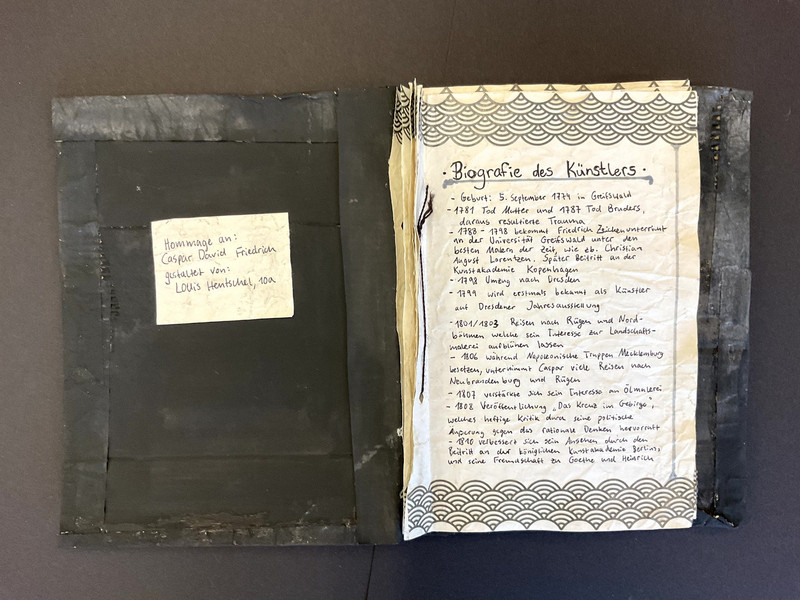 Hommage an:
Caspar David Friedrich
gestaltet von:
Louis Hentschel, 10a
· Biografie des Künstlers ·
- Geburt: 5. September 1774 in Greifswald
- 1781 Tod Mutter und 1787 Tod Bruders,
daraus resultierte Trauma
- 1788 - 1798 bekommt Friedrich Zeichenunterricht
an der Universität Greifswald unter den
besten Malern der Zeit, wie zb. Christian
August Lorentzen. Später Beitritt an der
Kunstakademie Kopenhagen
- 1798 Umzug nach Dresden
- 1799 wird erstmals bekannt als Künstler
auf Dresdener Jahresausstellung
- 1801/1803 Reisen nach Rügen und Nord-
böhmen welche sein Interesse zur Landschafts-
malerei aufblühen lassen
- 1806 während Napoleonische Truppen Mecklenburg
besetzen, unternimmt Caspar viele Reisen nach
Neubrandenburg und Rügen
- 1807 verstärkte sich sein Interesse an Ölmalerei
- 1808 Veröffentlichung „Das Kreuz im Gebirge",
welches heftige Kritik durch seine politische
Äußerung gegen das rationale Denken hervorruft
- 1810 verbessert sich sein Ansehen durch den
Beitritt an der königlichen Kunstakademie Berlins,
und seine Freundschaft zu Goethe und Heinrich